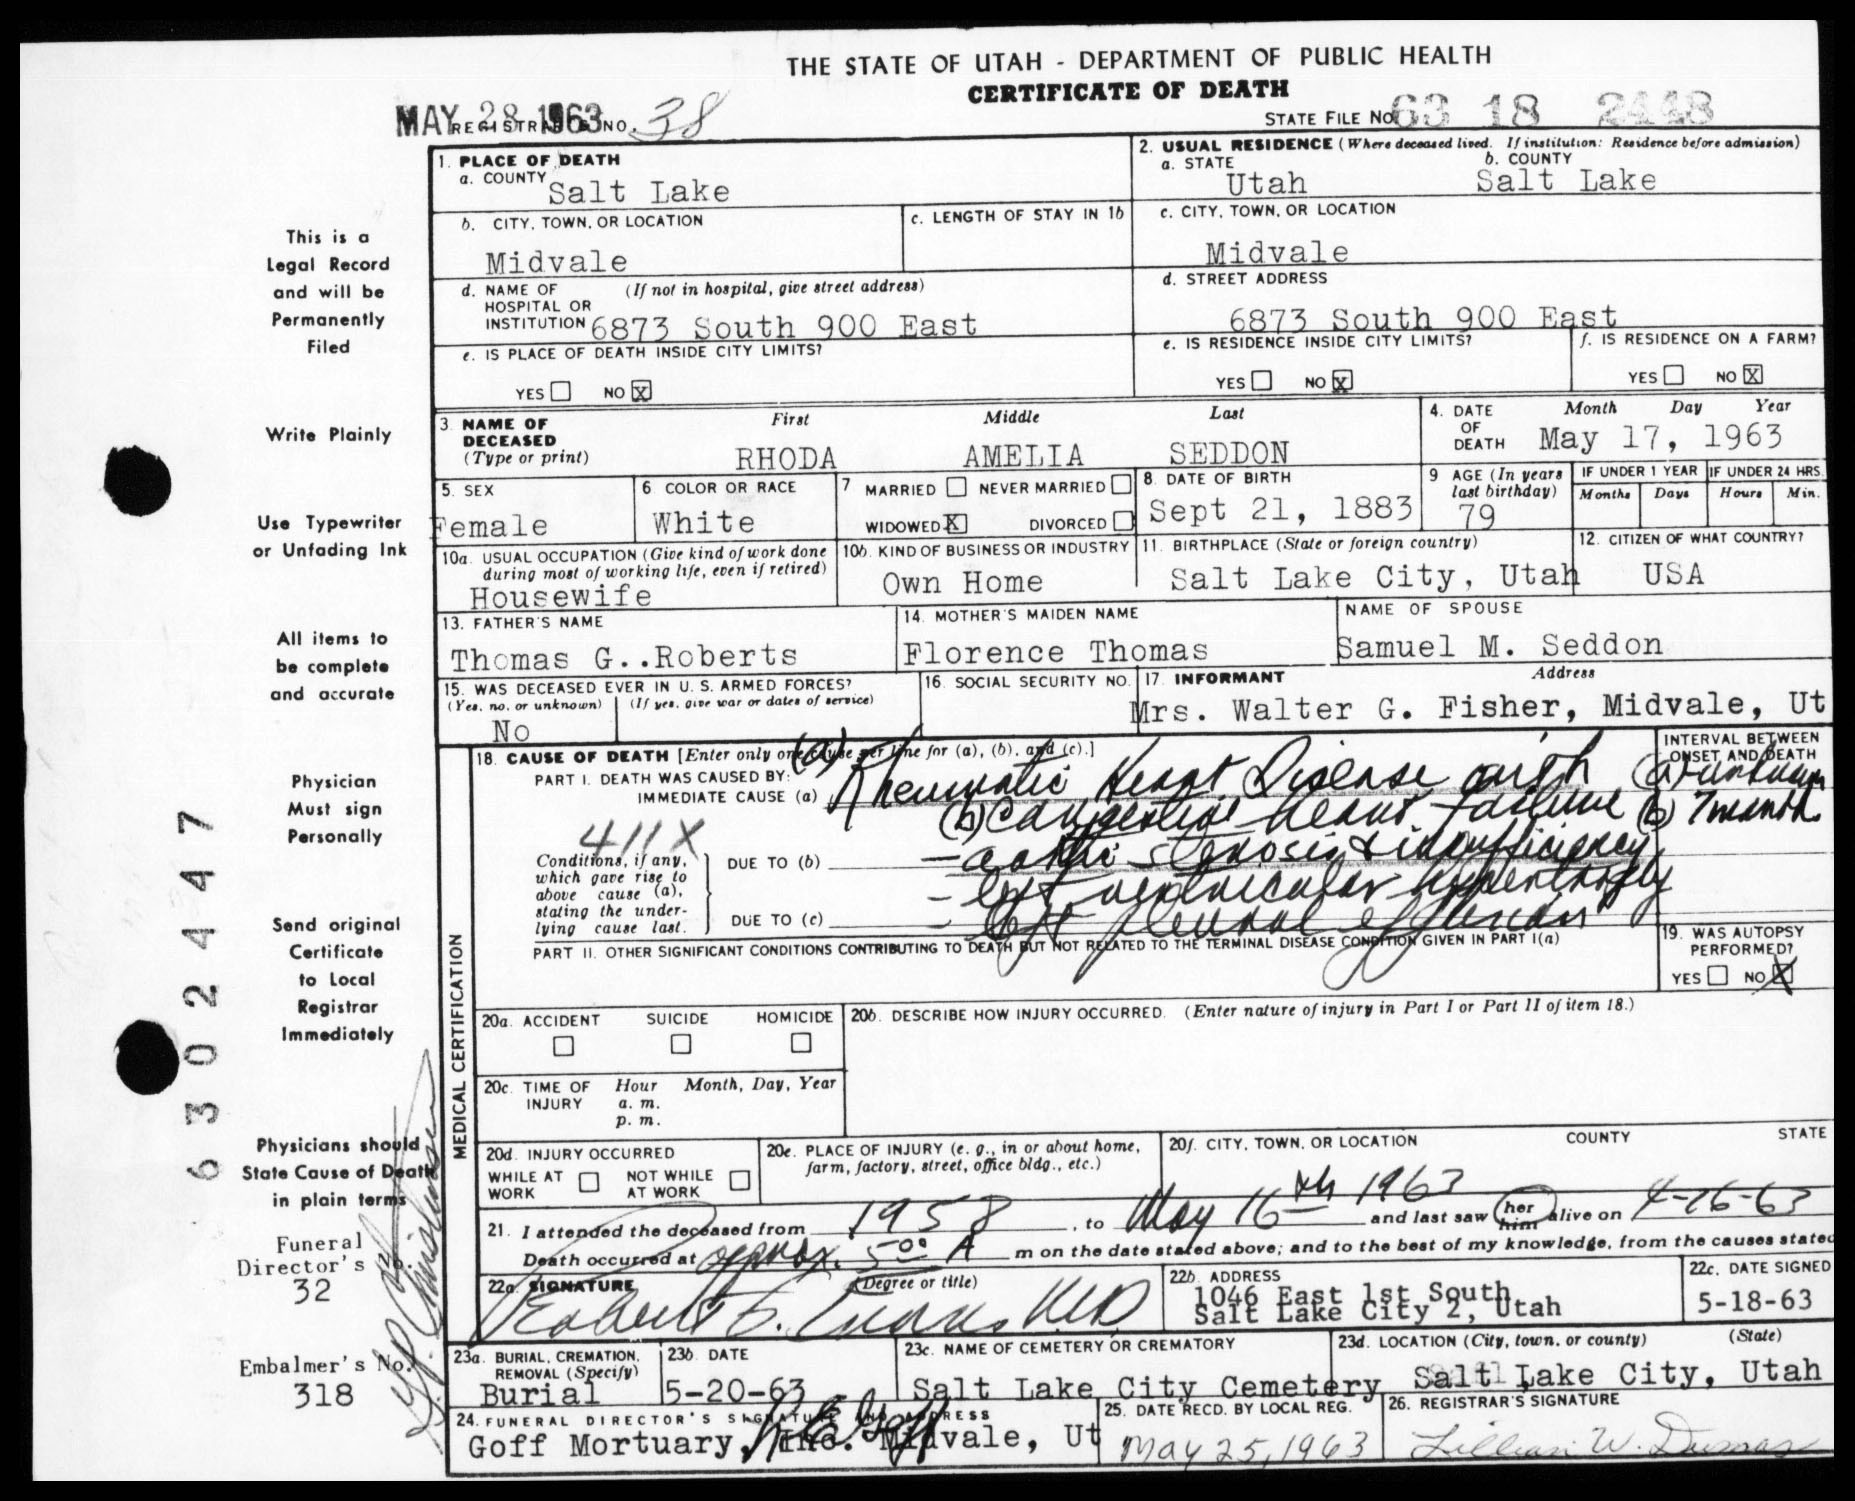 THE STATE OF UTAH - DEPARTMENT OF PUBLIC HEALTH
CERTIFICATE OF DEATH
MAY 28 1963
REGISTRAR'S NO. 38
STATE FILE NO. 63 18 2448
This is a
Legal Record
and will be
Permanently
Filed
Write Plainly
Use Typewriter
or Unfading Ink
All items to
be complete
and accurate
Physician
Must sign
Personally
Send original
Certificate
to Local
Registrar
Immediately
Physicians should
State Cause of Death
in plain terms
Funeral
Director's No.
32
Embalmer's No.
318
6302447
1. PLACE OF DEATH
a. COUNTY Salt Lake
2. USUAL RESIDENCE (Where deceased lived. If institution: Residence before admission)
a. STATE Utah b. COUNTY Salt Lake
b. CITY, TOWN, OR LOCATION Midvale
c. LENGTH OF STAY IN 1b
c. CITY, TOWN, OR LOCATION Midvale
d. NAME OF HOSPITAL OR INSTITUTION (If not in hospital, give street address) 6873 South 900 East
d. STREET ADDRESS 6873 South 900 East
e. IS PLACE OF DEATH INSIDE CITY LIMITS?
YES NO X
e. IS RESIDENCE INSIDE CITY LIMITS?
YES NO X
f. IS RESIDENCE ON A FARM?
YES NO X
3. NAME OF DECEASED (Type or print)
First Middle Last
RHODA AMELIA SEDDON
4. DATE OF DEATH Month Day Year
May 17, 1963
5. SEX Female
6 COLOR OR RACE White
7 MARRIED NEVER MARRIED
WIDOWED X DIVORCED
8. DATE OF BIRTH Sept 21, 1883
9 AGE (In years last birthday) 79
IF UNDER 1 YEAR Months Days
IF UNDER 24 HRS. Hours Min.
10a. USUAL OCCUPATION (Give kind of work done during most of working life, even if retired)
Housewife
10b. KIND OF BUSINESS OR INDUSTRY
Own Home
11. BIRTHPLACE (State or foreign country)
Salt Lake City, Utah
12. CITIZEN OF WHAT COUNTRY?
USA
13. FATHER'S NAME
Thomas G..Roberts
14. MOTHER'S MAIDEN NAME
Florence Thomas
NAME OF SPOUSE
Samuel M. Seddon
15. WAS DECEASED EVER IN U. S. ARMED FORCES?
(Yes, no, or unknown) (If yes, give war or dates of service)
No
16. SOCIAL SECURITY NO.
17. INFORMANT Address
Mrs. Walter G. Fisher, Midvale, Ut
MEDICAL CERTIFICATION
18. CAUSE OF DEATH [Enter only one cause per line for (a), (b), and (c).]
PART I. DEATH WAS CAUSED BY:
IMMEDIATE CAUSE (a) (a) Rheumatic Heart Disease with
(b) congestive heart failure
411X
Conditions, if any, which gave rise to above cause (a), stating the underlying cause last.
DUE TO (b) - aortic stenosis & insufficiency
- left ventricular hypertrophy
DUE TO (c) - left pleural effusion
INTERVAL BETWEEN ONSET AND DEATH
(a) unknown
(b) 7 month
PART II. OTHER SIGNIFICANT CONDITIONS CONTRIBUTING TO DEATH BUT NOT RELATED TO THE TERMINAL DISEASE CONDITION GIVEN IN PART I(a)
19. WAS AUTOPSY PERFORMED?
YES NO X
20a. ACCIDENT SUICIDE HOMICIDE
20b. DESCRIBE HOW INJURY OCCURRED. (Enter nature of injury in Part I or Part II of item 18.)
20c. TIME OF INJURY Hour Month, Day, Year
a. m.
p. m.
20d. INJURY OCCURRED
WHILE AT WORK NOT WHILE AT WORK
20e. PLACE OF INJURY (e. g., in or about home, farm, factory, street, office bldg., etc.)
20f. CITY, TOWN, OR LOCATION COUNTY STATE
21. I attended the deceased from 1958, to May 16th 1963 and last saw her him alive on 4-26-63
Death occurred at approx. 5:00 A m on the date stated above; and to the best of my knowledge, from the causes stated
22a. SIGNATURE (Degree or title)
Robert S. Evans MD
22b. ADDRESS
1046 East 1st South
Salt Lake City 2, Utah
22c. DATE SIGNED
5-18-63
23a. BURIAL, CREMATION, REMOVAL (Specify)
Burial
23b. DATE
5-20-63
23c. NAME OF CEMETERY OR CREMATORY
Salt Lake City Cemetery
23d. LOCATION (City, town, or county) (State)
Salt Lake City, Utah
24. FUNERAL DIRECTOR'S SIGNATURE AND ADDRESS
Goff Mortuary, Inc. Midvale, Ut
25. DATE RECD. BY LOCAL REG.
May 25, 1963
26. REGISTRAR'S SIGNATURE
Lillian W. Dumas